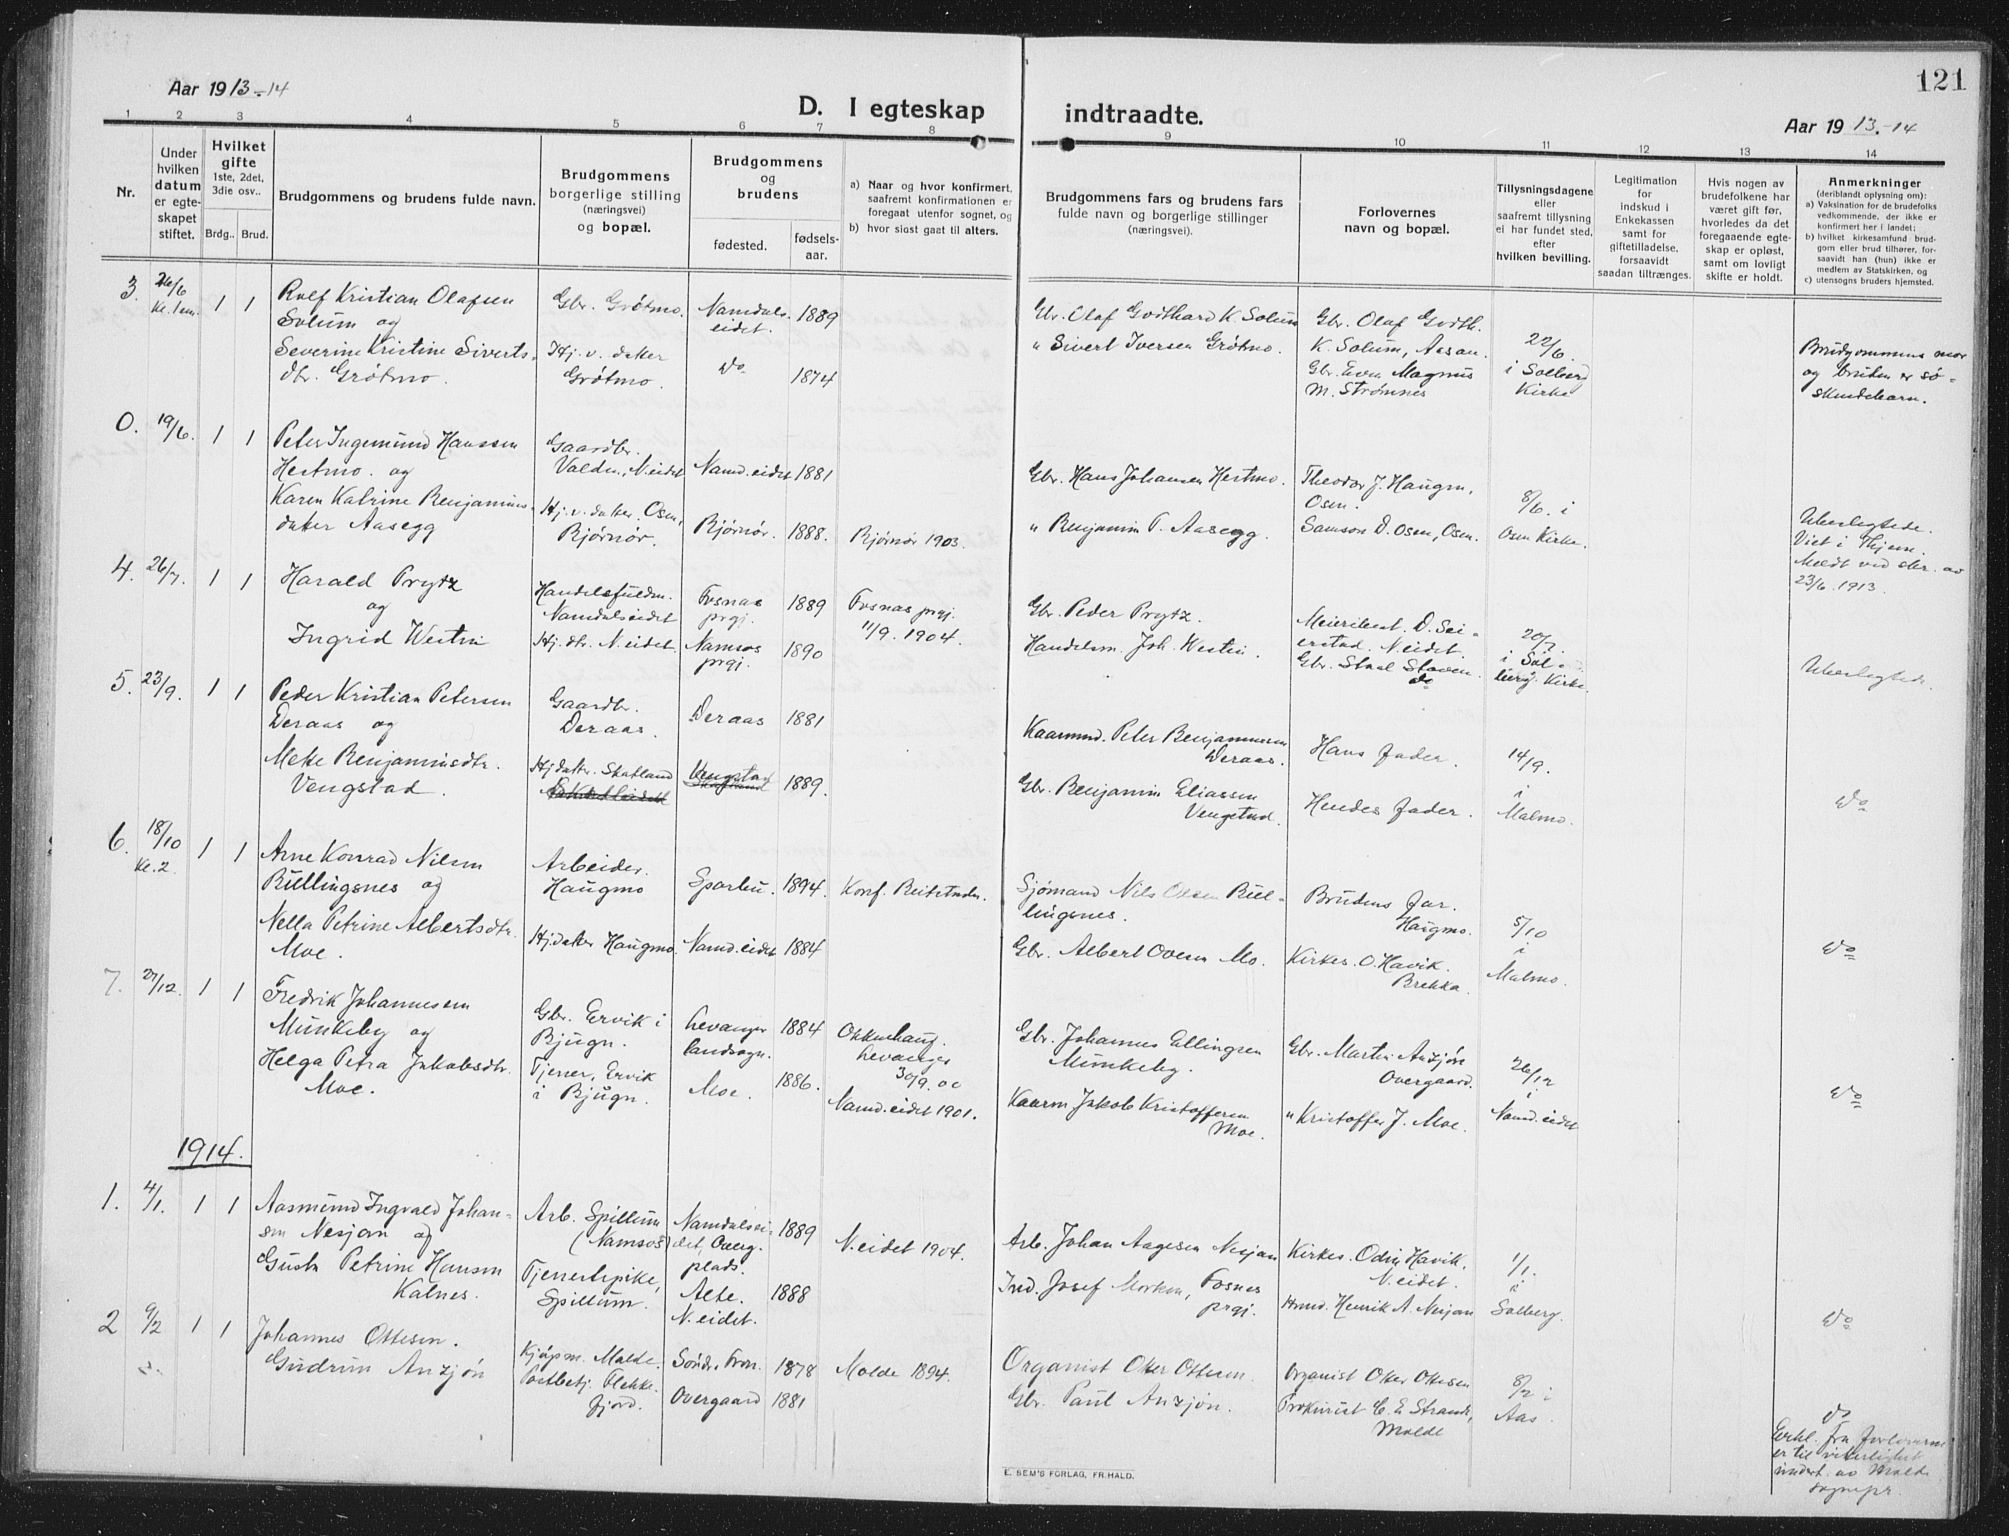 Aar 1913-14
D. I egteskap indtraadte.
121
Aar 1913-14
1 2 3 4 5 6 7 8 9 10 11 12 13 14
Nr.
Under hvilken datum er egteskapet stiftet.
Hvilket gifte 1ste, 2det, 3die osv..
Brdg.. Brud.
Brudgommens og brudens fulde navn.
Brudgommens borgerlige stilling (næringsvei) og bopæl.
Brudgommens og brudens
fødested. fødsels-aar.
a) Naar og hvor konfirmert, saafremt konfirmationen er foregaat utenfor sognet, og
b) hvor sidst gaat til alters.
Brudgommens fars og brudens fars fulde navn og borgerlige stillinger (næringsvei).
Forlovernes navn og bopæl.
Tillysningsdagene eller saafremt tillysning ei har fundet sted, efter hvilken bevilling.
Legitimation for indskud i Enkekassen samt for giftetilladelse, forsaavidt saadan tiltrænges.
Hvis nogen av brudefolkene har været gift før, hvorledes da det foregaaende egteskap er opløst, samt om lovligt skifte er holdt.
Anmerkninger (deriblandt oplysning om):
a) Vaksination for de brudefolks vedkommende, der ikke er konfirmert her i landet;
b) hvilket kirkesamfund brudgom eller brud tilhører, forsaavidt han (hun) ikke er medlem av Statskirken, og
c) utensogns bruders hjemsted.
3. 26/6 Kl. 1 em. 1 1
Rolf Kristian Olafsen
Solum og
Severine Kristine Siverts-
dtr. Grøtmo.
Gbr. Grøtmo.
Hj. v. datter
Grøtmo.
Namdals-
eidet. 1889
Do 1874
Gbr. Olaf Godthard K. Solum
" Sivert Iversen Grøtmo.
Gbr. Olaf Godth.
K. Solum, Aasan.
Gbr. Even Magnus
M. Strømnes
22/6.
i Solberg
Kirke
Brudgommens mor
og bruden er sø-
skendebarn.
0. 19/6. 1 1
Peter Ingemund Hanssen
Hestmo. og
Karen Katrine Benjamins-
datter Aasegg
Gaardbr.
N.eidet
Hj. v. datter. Osen,
Bjørnør.
Namd.eidet 1881
Bjørnør. 1888. Bjørnør 1903.
Gbr. Hans Johansen Hestmo.
" Benjamin T. Aasegg.
Theodor J. Haugen,
Osen.
Samson D. Osen, Osen.
8/6. i
Osen Kirke.
Uberegtede.
Viet i
Meldt ved skr. av
23/6 1913.
4. 26/7. 1 1
Harald Prytz
og
Ingrid Westin
Handelsfuldm.
Namdalseidet
Hj. dtr. N.eidet.
Fosnas
prgj. 1889
Namsos
prgj. 1890
Fosnas prgj.
11/9. 1904.
Gbr. Peder Prytz.
Handelsm. Joh. Westin.
Meieribest. D. Sei-
erstad. N.eidet.
Gbr. Staal Staven.
do
20/7.
i Sol-
berg. Kirke.
5. 23/9. 1 1
Peder Kristian Petersen
Deraas og
Mette Benjaminsdtr.
Vengstad.
Gaardbr.
Deraas.
Hjdatter. Skatland
Deraas 1881
Vengstad 1889.
Kaarmnd. Peter Benjaminsen
Deraas.
Gbr. Benjamin Eliassen
Vengstad.
Hans Fader.
Hendes Fader.
14/9.
i
Malmo.
Do
6. 18/10 Kl. 2 1 1
Arne Konrad Nilsen
Bullingsnes og
Nella Petrine Albertsdtr.
Moe.
Arbeider.
Haugmo
Hjdatter Haugmo.
Sparbu. 1894 Konf. Beitstaden.
Namd.eidet 1884
Sjømand Nils Olsen Bul-
lingsnes.
Gbr. Albert Ovesen Mo.
Brudens far.
Haugmo.
Kirkes. O. Havik.
Brekka.
5/10
i
Malmo.
Do
7. 27/12. 1 1
Fredrik Johannesen
Munkeby og
Helga Petra Jakobsdtr.
Moe.
Gbr. Ervik i
Bjugn.
Tjener, Ervik
i Bjugn.
Levanger
landsogn. 1884
Moe. 1886.
Okkenhaug.
Levanger
30/9. 00
Namd.eidet 1901.
Gbr. Johannes Ellingsen
Munkeby.
Kaarm Jakob Kristoffersen
Moe.
Gbr. Martin Anzjøn
Overgaard.
" Kristoffer J. Moe.
26/12
i
Namd.eidet
Do
1914.
1. 4/1. 1 1
Aasmund Ingvald Johan-
sen Nesjan og
Gusta Petrine Hansen
Kalnes.
Arb. Spillum
(Namsos)
Tjenestepike,
Spillum.
Namdalsei-
det, Overg.
plads. 1889
Alte. 1888
N.eidet.
N.eidet 1904.
Arb. Johan Aagesen Nesjan
Ind. Josef Morken, Fosnes
prgj.
Kirkes. Odin Havik.
N.eidet.
Henrik A. Nesjan
1/1.
i
Solberg.
Do
2 9/2 1 1
Johannes Ottesen.
Gudrun Anzjøn
Kjøpm. Molde.
Postbetj. Flekke-
fjord.
Søndre Fron. 1878 Molde 1894.
Overgaard 1881
Organist Otter Ottesen.
Gbr. Paul Anzjøn.
Organist Otter Ottesen
Prokurist C. E. Strande,
Molde
8/2 i
Aas.
Do
Erkl. fra forloverne
er til vitterlighet
undert. av Molde
sognepr.
E. SEM'S FORLAG, FR.HALD.